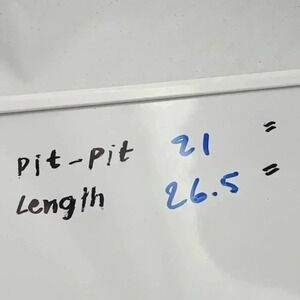 Pit-Pit 21 "
Length 26.5 "